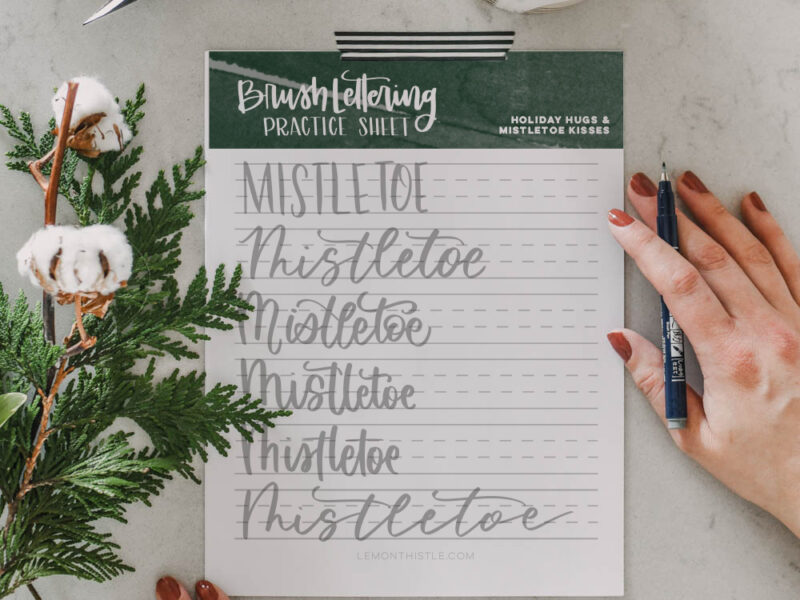 Brush Lettering
PRACTICE SHEET
HOLIDAY HUGS &
MISTLETOE KISSES
MISTLETOE
Mistletoe
Mistletoe
Mistletoe
Mistletoe
Mistletoe
LEMONTHISTLE.COM